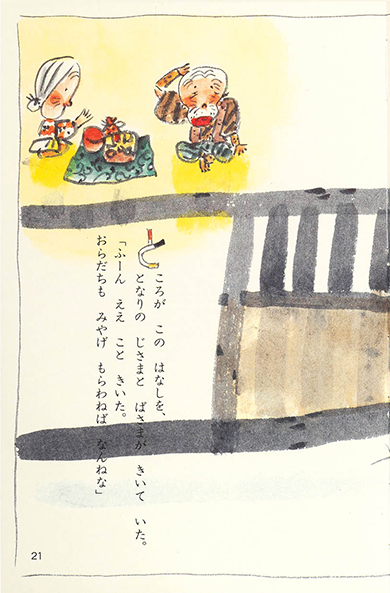 ところが この はなしを、
となりの じさまと ばさまが きいて いた。
「ふーん ええ こと きいた。
おらだちも みやげ もらわねば なんねな」
21